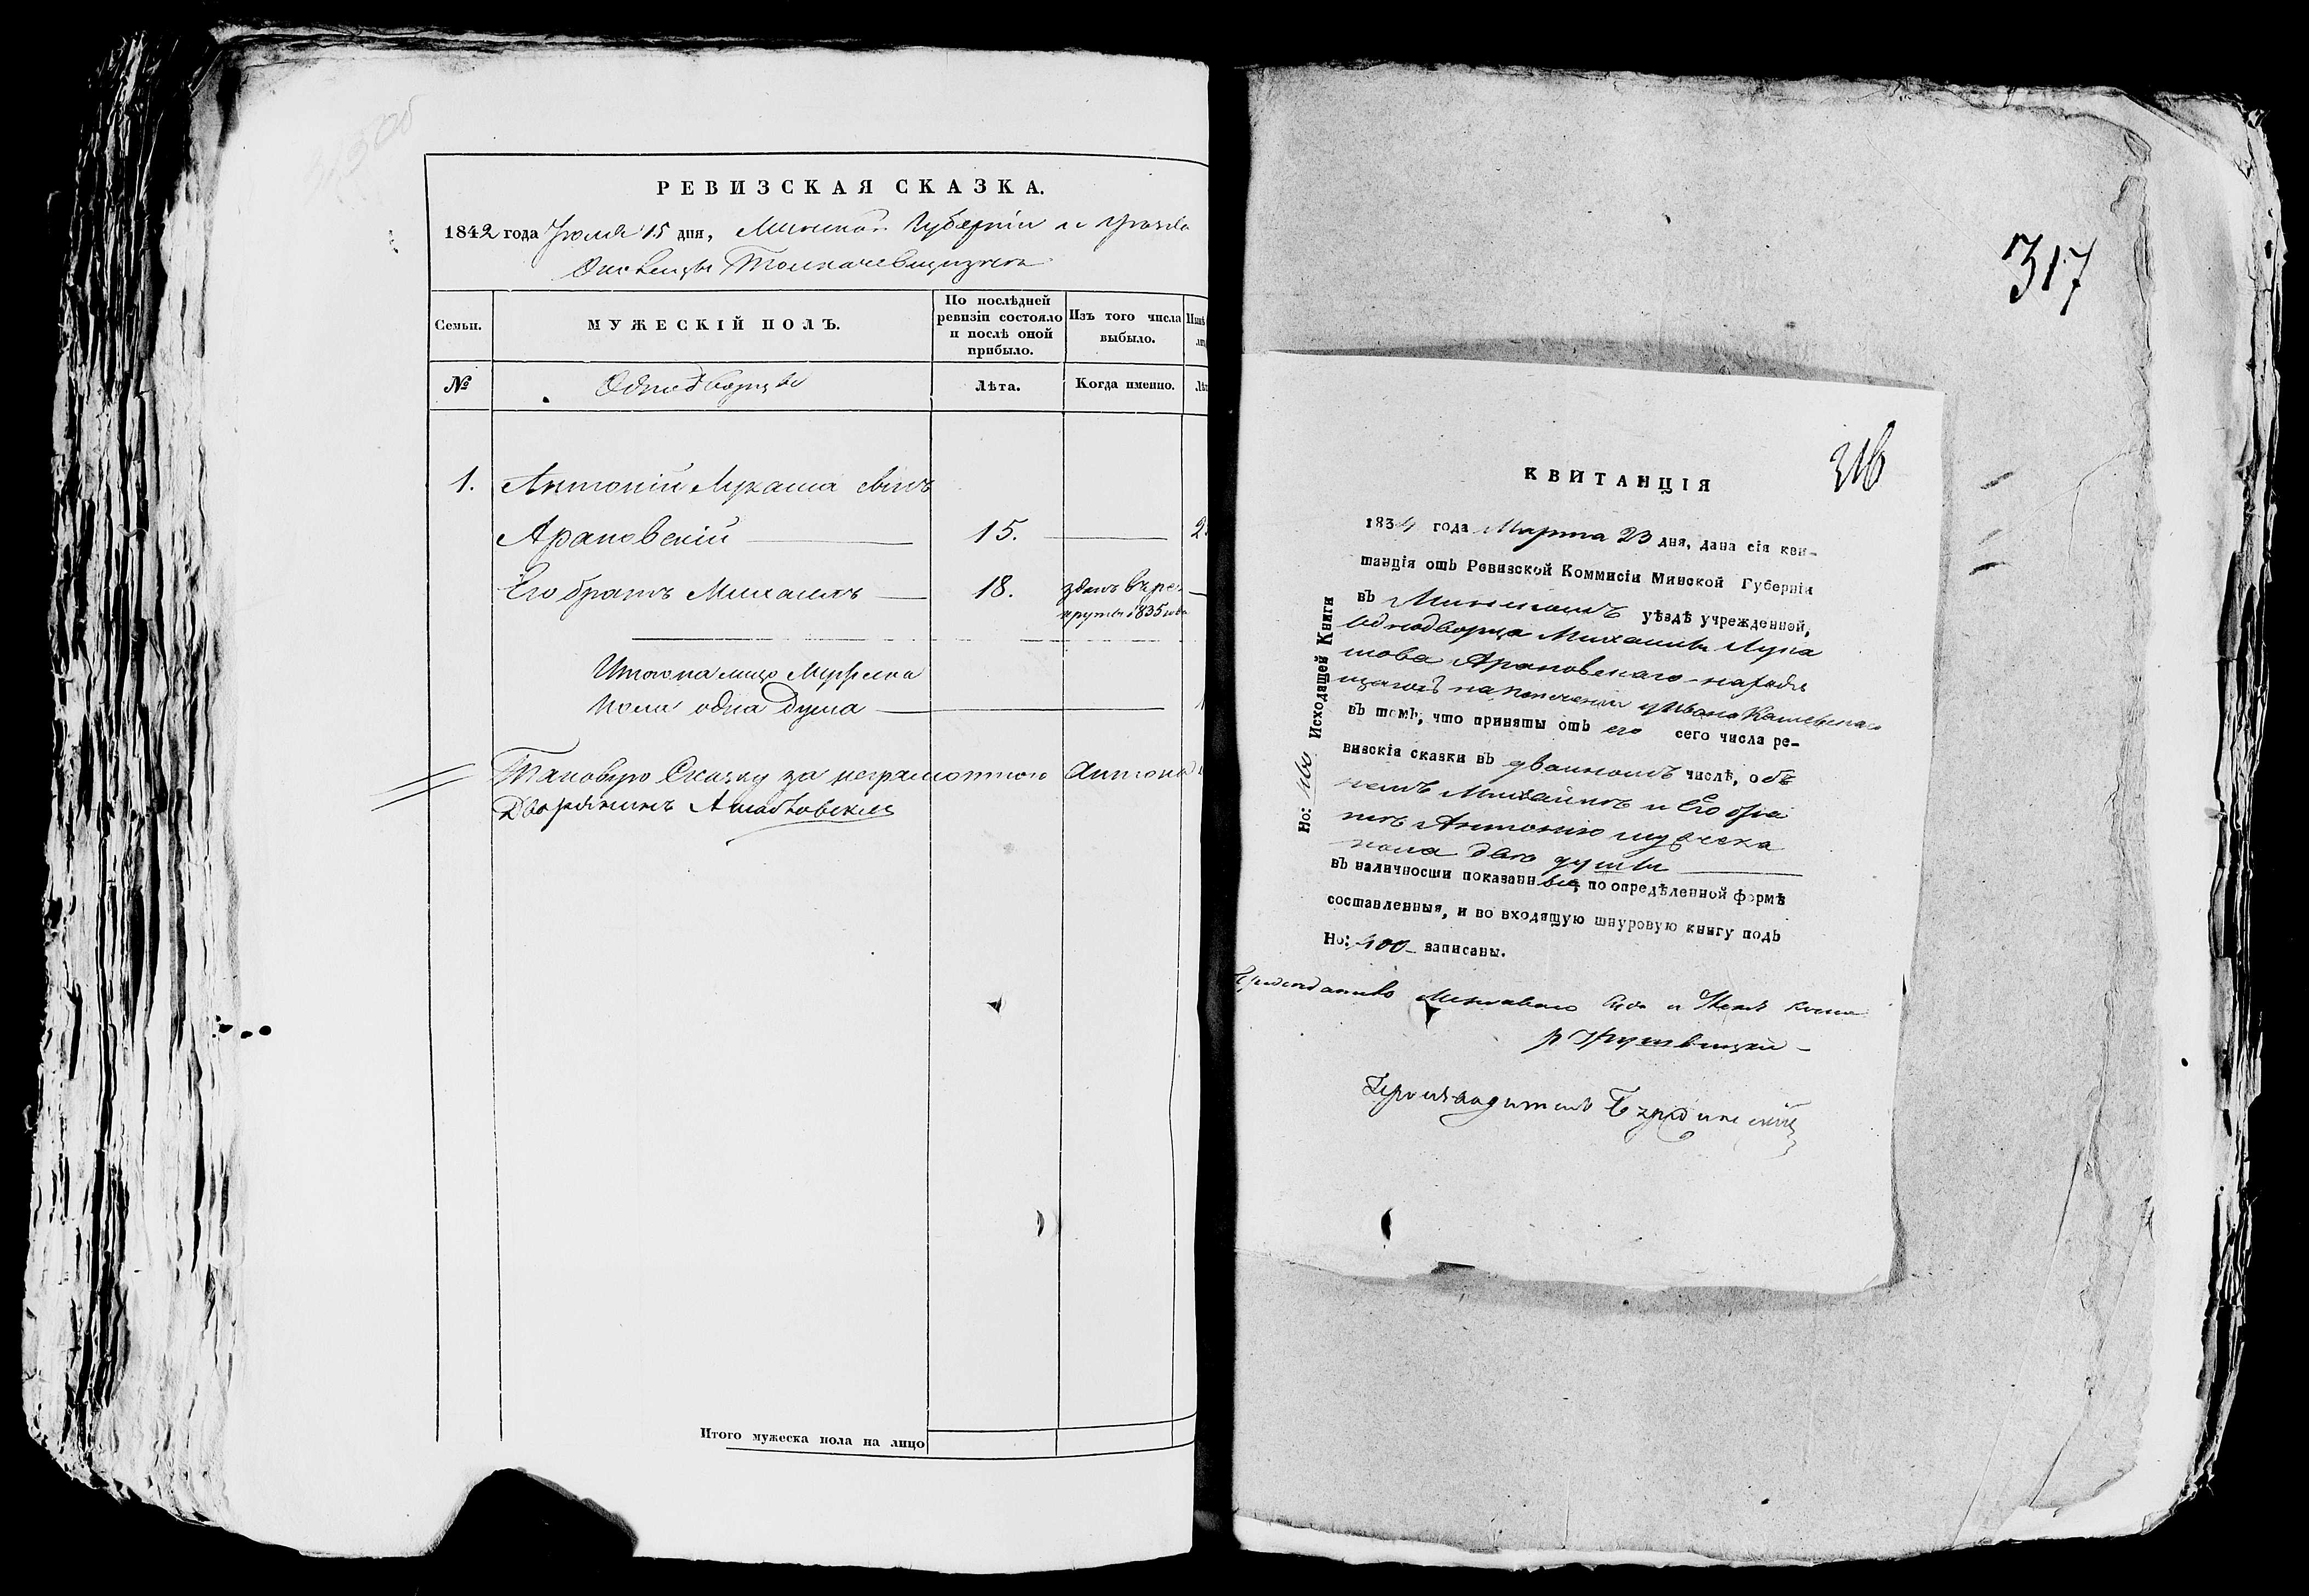 РЕВИЗСКАЯ СКАЗКА.
1842 года Іюля 15 дня, Минской Губерніи и уѣзда
Семьи.
МУЖЕСКІЙ ПОЛЪ.
По послѣдней ревизіи состояло и послѣ оной прибыло.
Изъ того числа выбыло.
№
Однодворцы
Лѣта.
Когда именно.
1. Антоній Лукаша сынъ
Арановскій 15.
Его братъ Михаилъ 18. зданъ въ рекруты 1835 года
Итого на лицо Мужеска
пола одна душа
Таковую Сказку за неграмотного Антона
Дворянинъ
Итого мужеска пола на лицо
317
316
КВИТАНЦІЯ
1834 года Марта 23 дня, дана сія кви-
танція отъ Ревизской Коммисіи Минской Губерніи
въ Минскомъ уѣздѣ учрежденной,
Однодворца Михаила Лука
шова Арановскаго находя
въ томъ, что приняты отъ его сего числа ре-
визскія сказки въ двойномъ числѣ, объ
немъ Михаилѣ и Его бра
тѣ Антонію мужеска
пола двѣ души
въ наличности показанные, по опредѣленной формѣ
составленныя, и во входящую шнуровую книгу подъ
Но: 400 записаны.
Но: 400 Исходящей Книги
Производитель